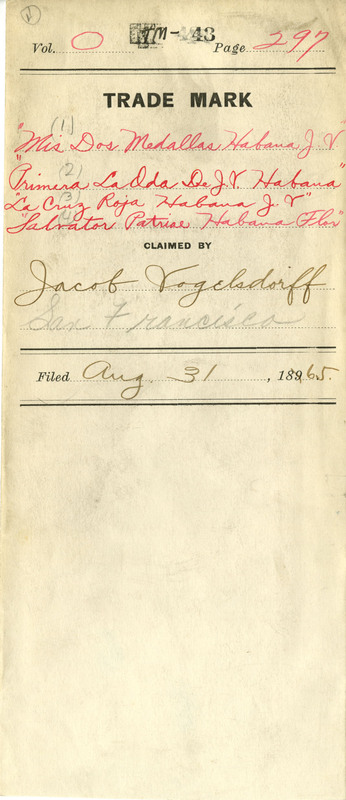 TM-143
Vol. O Page 297
TRADE MARK
(1)
"Mis Dos Medallas Habana J. V"
(2)
"Primera La Oda De J. V. Habana"
3
"La Cruz Roja Habana J. V"
4
"Salvator Patriae Habana Flor"
CLAIMED BY
Jacob Vogelsdorff
San Francisco
Filed Aug. 31, 1865.